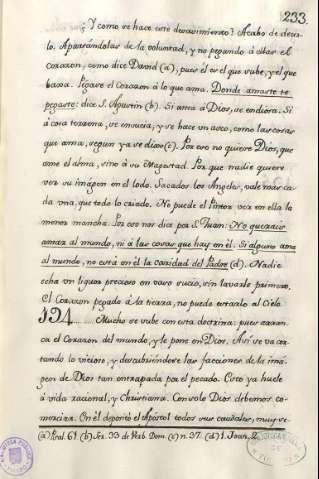 233.
¿Y como se hace este desasimiento? Acabo de decir-
lo. Apartándolas de la voluntad, y no pegando á ellas el
corazon, como dice David (a), pues él es el que sube, y el que
baxa. Pégase el Corazon á lo que ama. Donde amaste te
pegaste: dice S. Agustin (b). Si ama á Dios, se endiosa. Si
á cosa terrena, se ensucia, y se hace un asco, como las cosas
que ama, segun ya se dixo (c). Por eso no quiere Dios, que
ame el alma, sino á su Magestad. Por que nadie quiere
ver su imágen en el lodo. Sacados los Angeles, vale mas ca-
da una, que todo lo criado. No puede el Pintor ver en ella la
menor mancha. Por eso nos dice por S. Juan: No querais
amar al mundo, ni á las cosas que hay en él. Si alguno ama
al mundo, no está en él la caridad del Padre (d). Nadie
echa un liquor precioso en vaso sucio, sin lavarle primero.
El Corazon pegado á la tierra, no puede estarlo al Cielo.
124 Mucho se sube con esta doctrina: pues arran-
ca el Corazon del mundo, y le pone en Dios. Asi se va cor-
tando lo vicioso, y descubriéndose las facciones de la imá-
gen de Dios tan entrapada por el pecado. Esto ya huele
á vida racional, y Christiana. Con solo Dios debemos co-
merciar. En él depositó el Apóstol todos sus caudales, muy se-
(a) Psal. 61. (b) Ser. 33 de Verb. Dom. (c) n. 37. (d) 1. Joan. 2.